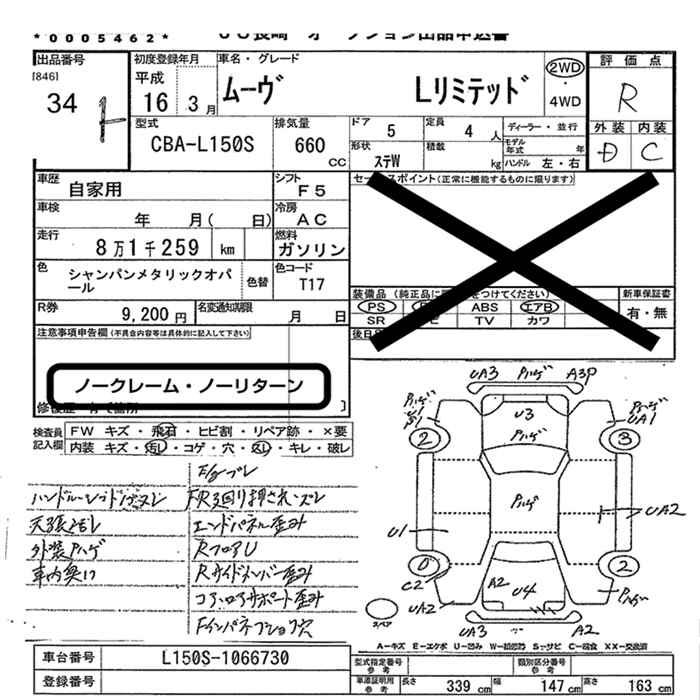 *0005462* ＵＳ長崎 オークション出品申込書
出品番号 初度登録年月 車名・グレード 評価点
[846] 平成 2WD
34 16 3月 ムーヴ Lリミテッド ・4WD R
型式 排気量 ドア 5 定員 4 人 ディーラー・並行 外装 内装
CBA-L150S 660 CC 形状 ステW 積載 kg モデル年式 年 D C
ハンドル 左・右
車歴 自家用 シフト F5 セールスポイント(正常に機能するものに限ります)
車検 年 月( 日) 冷房 AC
走行 8万1千259 km 燃料 ガソリン
色 シャンパンメタリックオパール 色替 色コード T17
装備品 (純正品に をつけてください) 新車保証書
R券 9,200 円 名変通知期限 月 日 PS ABS エアB 有・無
SR TV カワ
注意事項申告欄(不具合内容等は具体的に記入して下さい) 後日
ノークレーム・ノーリターン
修復歴 有 箇所
検査員記入欄 FW キズ・飛石・ヒビ割・リペア跡・×要
内装 キズ・汚レ・コゲ・穴・スレ・キレ・破レ
天張汚レ エンドパネル歪み
外装Pハゲ RフロアU
車内臭い Rサイドメンバー歪み
コアロアサポート歪み
UA3 Pハゲ A3P
Pハゲ U1 S1 U3 Pハゲ Pハゲ UA1
2 3
Pハゲ
U1 UA2
2
C2 A2 U4 Pハゲ
UA2 W
スペア UA3 A2
A－キズ E－エクボ U－凹み W－補修跡 S－サビ C－腐食 XX－交換済
車台番号 L150S-1066730 型式指定番号 参考 類別区分番号 参考
登録番号 車庫証明用 参考 長さ 339 cm 幅 147 cm 高さ 163 cm